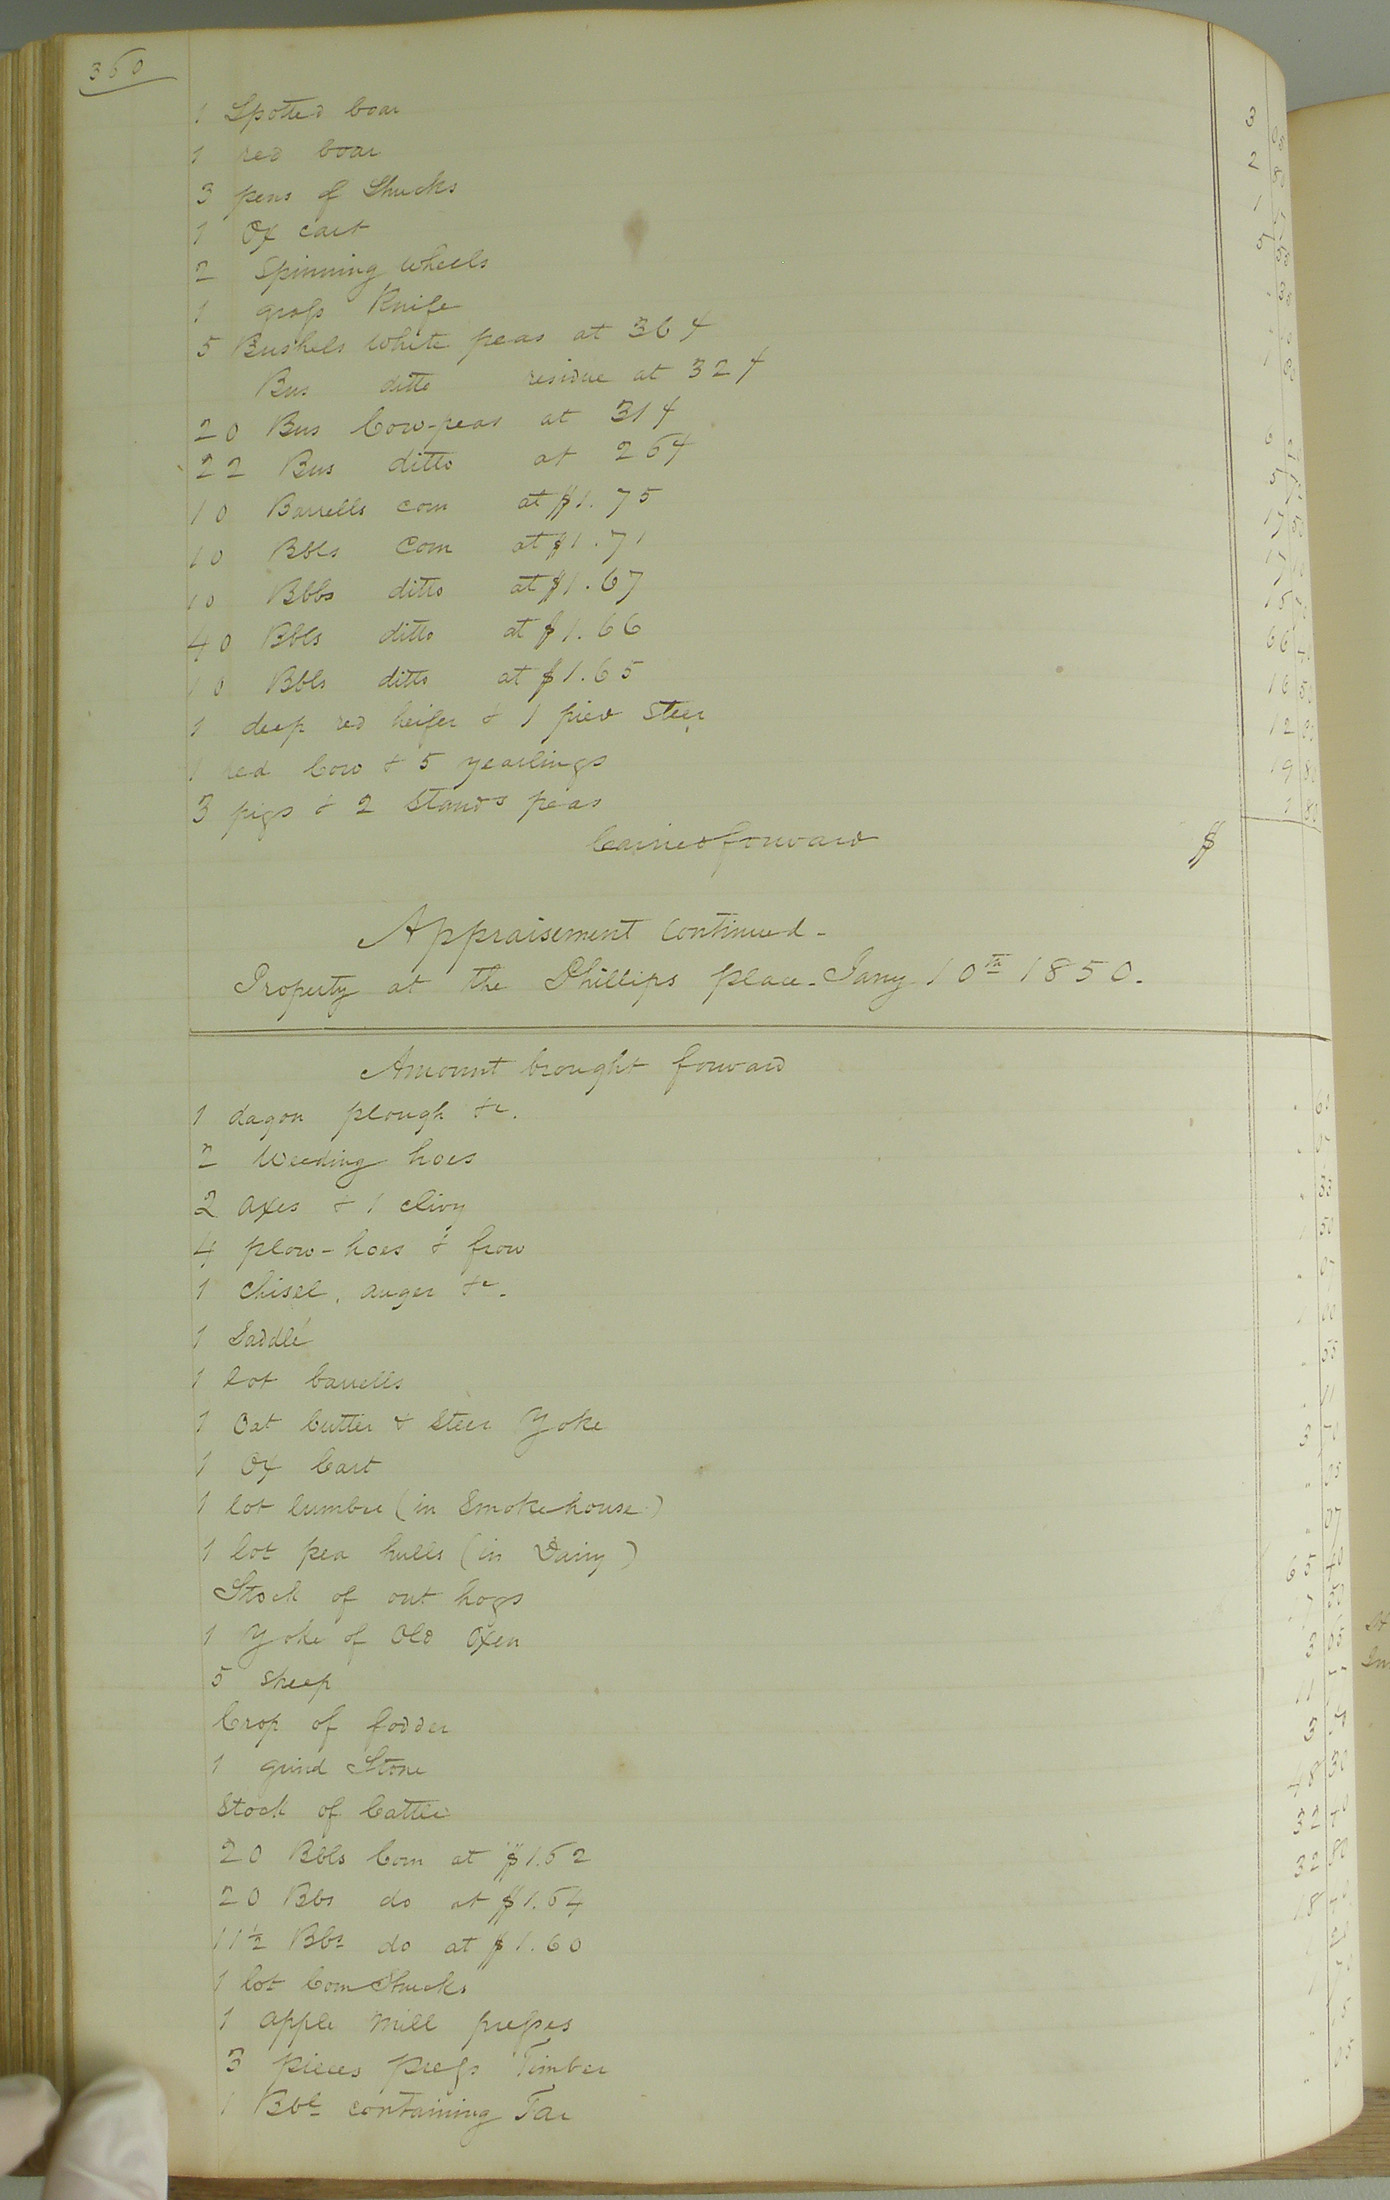 360
1 Spotted boar 3
1 red boar 2
3 pens of Shucks 1
1 Ox cart 5
2 Spinning wheels
1 grass Knife
5 Bushels white peas at 36¢ 1
Bus ditto residue at 32¢
20 Bus Cow-peas at 31¢ 6
22 Bus ditto at 26¢ 5
10 Barrells corn at $1.75 17 50
10 Bbls Corn at $1.71 17 10
10 Bbbs ditto at $1.67
40 Bbls ditto at $1.66 66
10 Bbls ditto at $1.65 16 50
1 deep red heifer & 1 pied Steer 12
1 red Cow & 5 yearlings 19
3 pigs & 2 Stands peas 1
Carried forward $
Appraisement continued-
Property at the Phillips place. Jany 10th 1850.
Amount brought forward
1 dagon plough &c.
2 Weeding hoes
2 axes & 1 clivy
4 plow-hoes & frow 1 50
1 chisel, auger &c.
1 Saddle 1 00
1 lot barrells
1 Oat Cutter & Steer Yoke
1 Ox Cart 3
1 lot lumber (in Smokehouse)
1 lot pea hulls (in Dairy)
Stock of out hogs 65 40
1 Yoke of Old Oxen
5 sheep 3
Crop of fodder 11
1 grind Stone 3
Stock of Cattle
20 Bbls Corn at $1.62 32 40
20 Bbs do at $1.64 32 80
11½ Bbs do at $1.60 18 40
1 lot Corn Shucks
1 apple mill presses
3 pieces press Timber
1 Bbl containing Tar